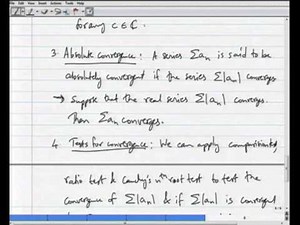 for any c ∈ ℂ.
3. Absolute convergence : A series Σaₙ is said to be
absolutely convergent if the series Σ|aₙ| converges
→ Suppose that the real series Σ|aₙ| converges.
Then Σaₙ converges.
4. Tests for convergence : We can apply
ratio test & Cauchy's nᵗʰ root test to test the
convergence of Σ|aₙ| & if Σ|aₙ| is convergent